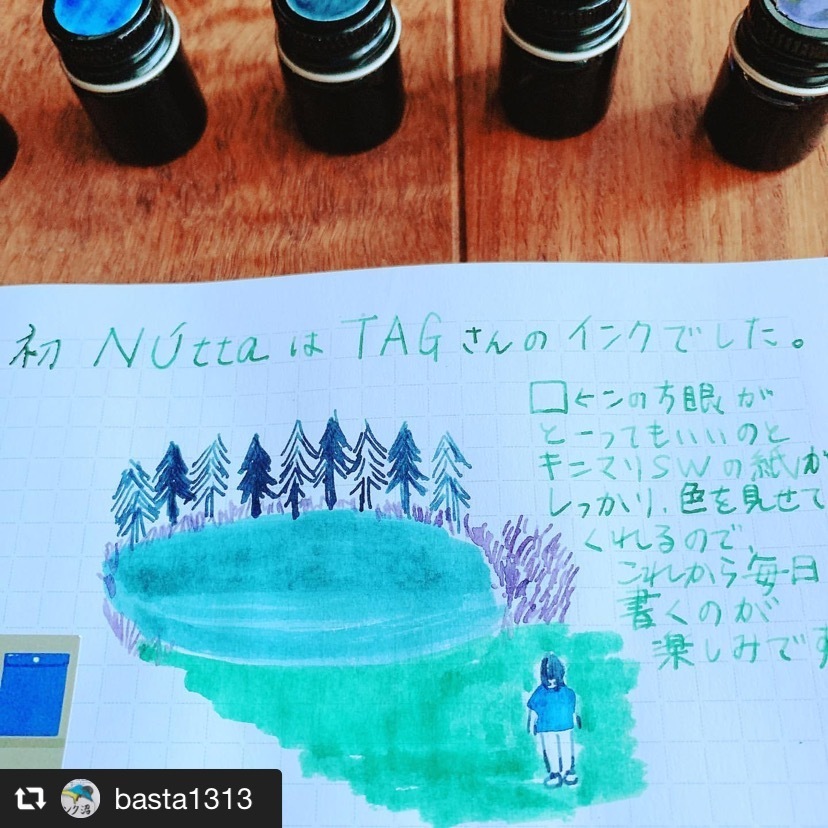 初 NUtta は TAG さんの インクでした。
ヒンの方眼が
とーってもいいのと
キニマリSWの紙が
しっかり、色を見せて
くれるので、
これから毎日
書くのが
楽しみです
basta1313